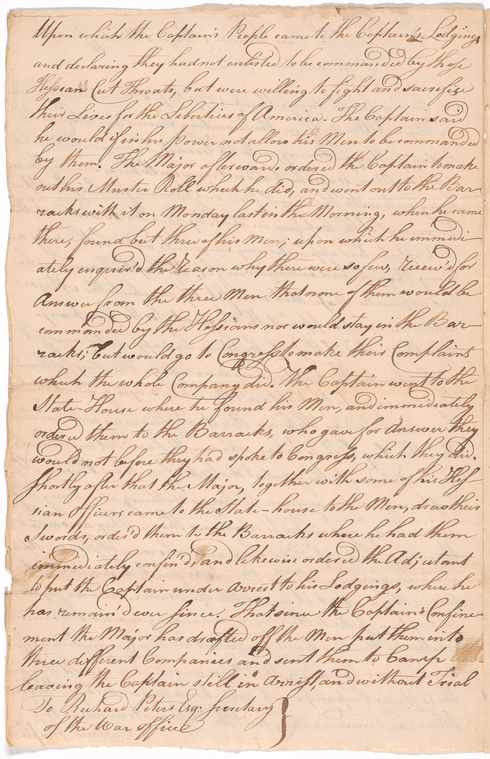 Upon which the Captain's People came to the Captain's Lodgings
and declaring they had not enlisted to be commanded by those
Hessian Cut Throats, but were willing to fight and sacrifize
their Lives for the Liberties of America. The Captain said
he would if in his power not allow his Men to be commanded
by them. The Major afterwards ordered the Captain to make
out his Muster Roll which he did, and went out to the Bar-
racks with it on Monday last in the Morning, when he came
there, found but three of his Men; upon which he immedi-
ately enquir'd the reason why there were so few, receiv'd for
Answer from the three Men that none of them would be
commanded by the Hessians nor would stay in the Bar-
racks; but would go to Congress to make their Complaint
which the whole Company did. The Captain went to the
State-House where he found his Men, and immediately
ordered them to the Barracks, who gave for Answer they
would not before they had spoke to Congress, which they did.
Shortly after that the Major, together with some of his Hes-
sian officers came to the State-house to the Men, drew their
Swords, order'd them to the Barracks where he had them
immediately confin'd, and likewise ordered the Adjutant
to put the Captain under Arrest to his Lodgings, where he
has remain'd ever since. That since the Captain's Confine-
ment the Major has drafted off the Men put them into
three different Companies and sent them to Camp
leaving the Captain still in Arrest, and without Trial
To Richard Peters Esqr. Secretary
of the War office